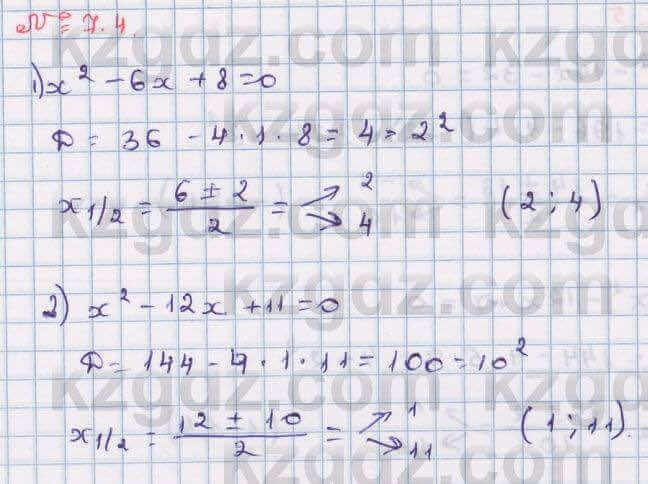 № 7.4.
1) x² - 6x + 8 = 0
D = 36 - 4·1·8 = 4 = 2²
x1/2 = (6 ± 2)/2 = ↗ 2 ↘ 4 (2 ; 4)
2) x² - 12x + 11 = 0
D = 144 - 4·1·11 = 100 = 10²
x1/2 = (12 ± 10)/2 = ↗ 1 ↘ 11 (1 ; 11).
kzgdz.com